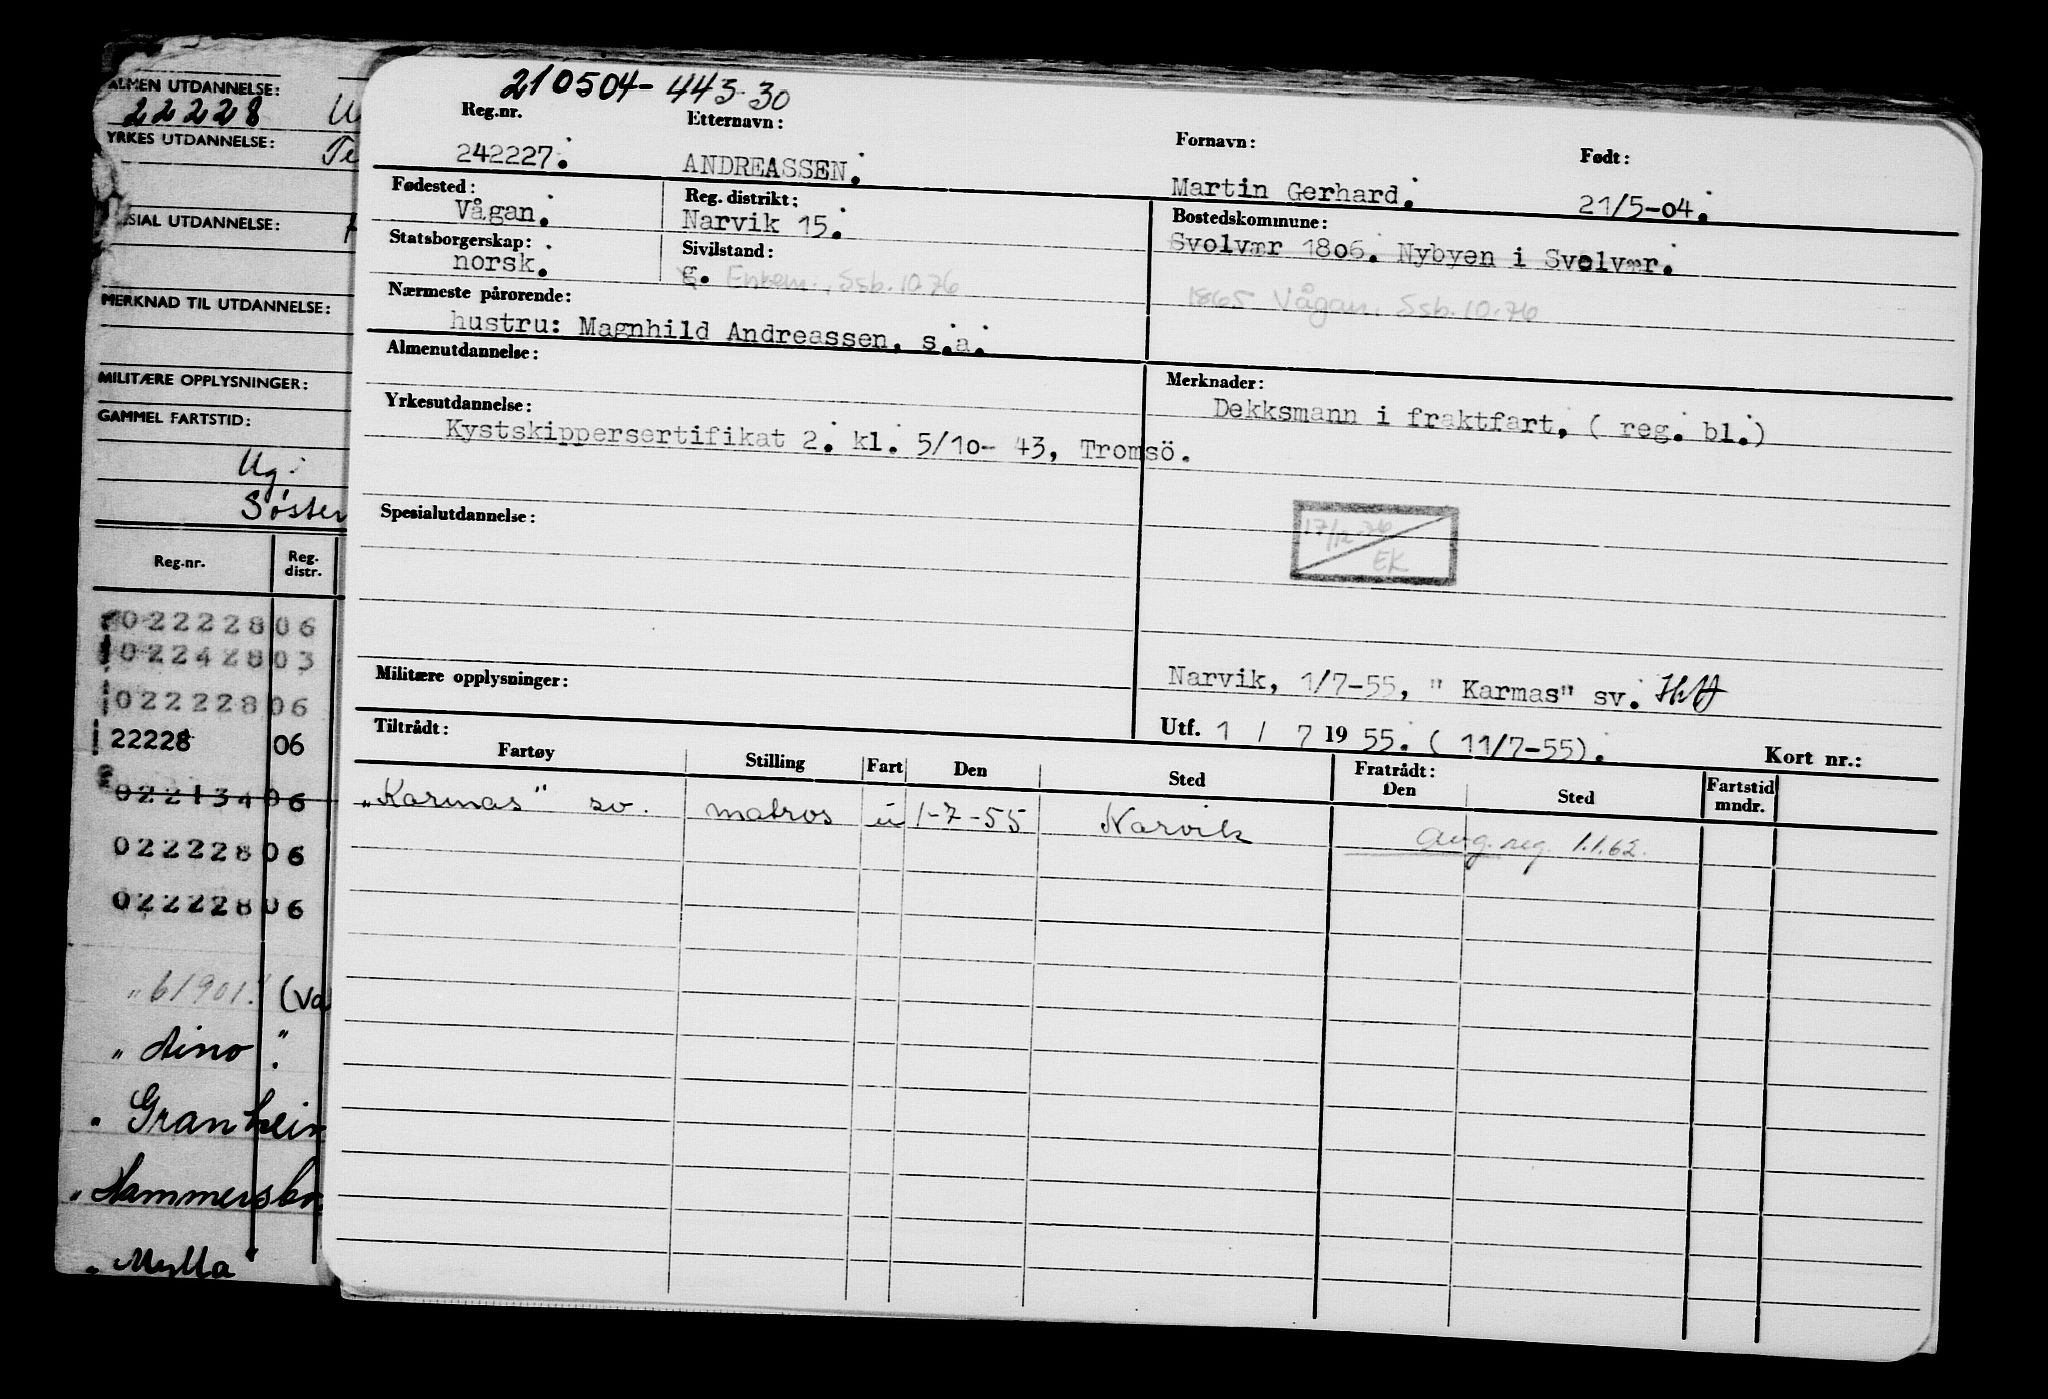 ALMEN UTDANNELSE:
22228
YRKES UTDANNELSE:
Te
SIAL UTDANNELSE:
MERKNAD TIL UTDANNELSE:
MILITÆRE OPPLYSNINGER:
GAMMEL FARTSTID:
Søster
Reg.nr. Reg. distr.
022228 06
022428 03
022228 06
22228 06
022134 06
022228 06
022228 06
„61901." (Va
„Aino".
„Granheim
„Hammersbo
„Mylla"
210504-443-30
Reg.nr. Etternavn: Fornavn: Født:
242227. ANDREASSEN. Martin Gerhard. 21/5-04.
Fødested: Reg. distrikt: Bostedskommune:
Vågan. Narvik 15. Svolvær 1806. Nybyen i Svolvær.
Statsborgerskap: Sivilstand:
norsk. g. Enkem., Ssb. 10.76
1865 Vågan, Ssb. 10.76
Nærmeste pårørende:
hustru: Magnhild Andreassen, s.a.
Almenutdannelse: Merknader:
Dekksmann i fraktfart, ( reg. bl.)
Yrkesutdannelse:
Kystskippersertifikat 2. kl. 5/10- 43, Tromsö.
Spesialutdannelse:
17/12-76
EK
Militære opplysninger:
Narvik, 1/7-55, " Karmas" sv.
Utf. 1 / 7 19 55. ( 11/7-55). Kort nr.:
Tiltrådt: Fratrådt:
Fartøy Stilling Fart Den Sted Den Sted Fartstid mndr.
„Karmas" sv. matros u 1-7-55 Narvik avg. reg. 1.1.62.